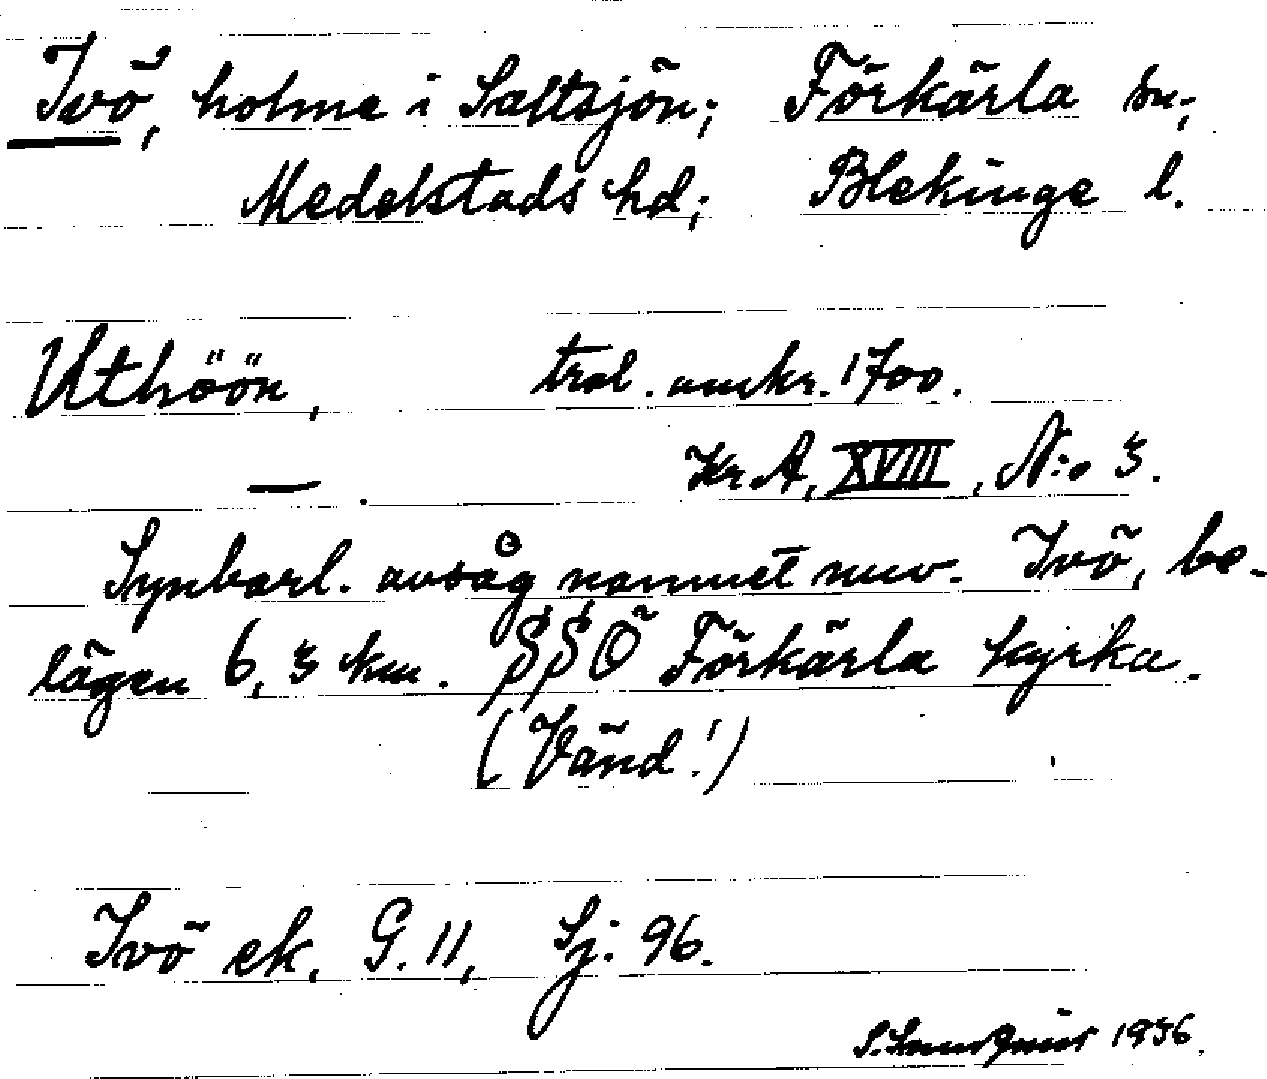 Ivö, holme i Saltsjön; Förkärla sn;
Medelstads hd; Blekinge l.
Uthöön, trol. omkr. 1700.
— . KrA, XVIII, N:o 3.
Synbarl. avsåg namnet nuv. Ivö, be-
lägen 6,3 km. SSÖ Förkärla kyrka.
(Vänd!)
Ivö ek. G. 11, Sj: 96.
S. 1936.